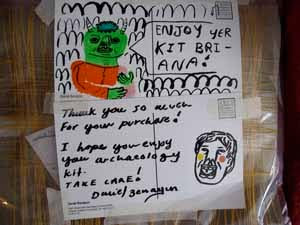 ENJOY YER
KIT BRI-
ANA!
Thank you so much
For your purchase!
I hope you enjoy
you archaeology
kit.
TAKE CARE!